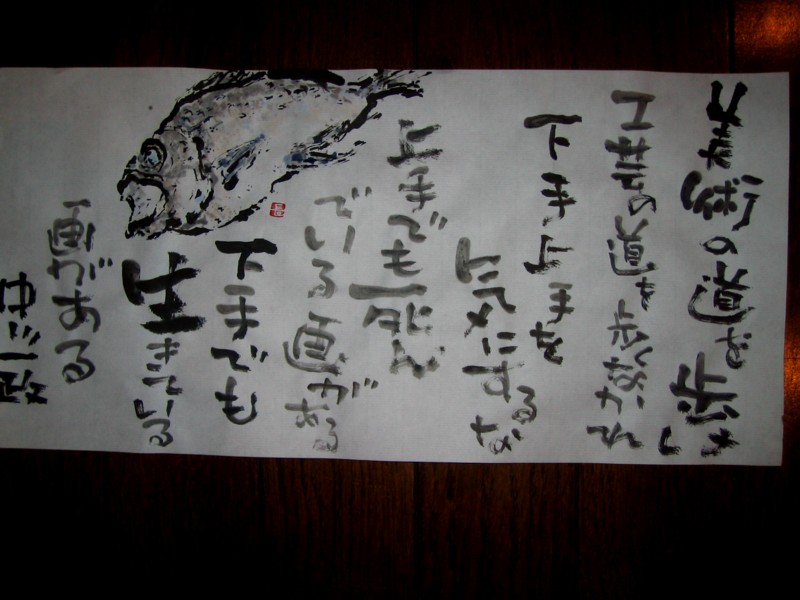 美術の道を歩
工芸の道を歩くなかれ
下手上手を
気にするな
上手でも死ん
でいる画がある
下手でも
生きている
画がある
中川一政